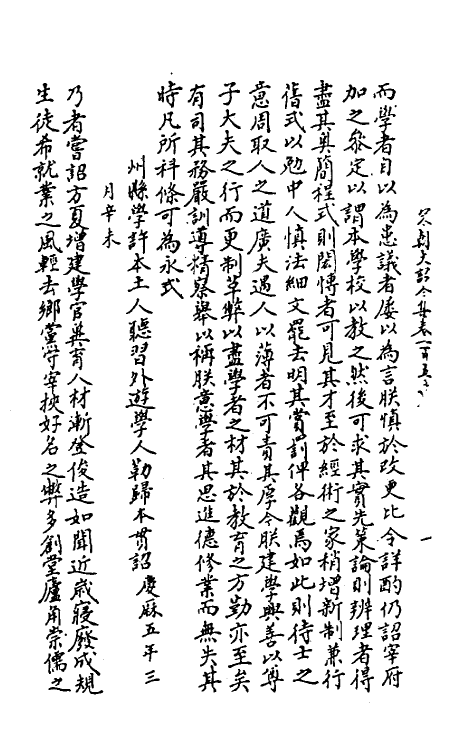 宋朝大詔令集卷一百五十
而學者自以為患議者屢以為言朕慎於改更比令詳酌仍詔宰府
加之參定以謂本學校以教之然後可求其實先策論則辨理者得
盡其奧簡程式則閎博者可見其才至於經術之家稍增新制兼行
舊式以勉中人慎法細文罷去明其賞罰俾各觀焉如此則待士之
意周取人之道廣夫遇人以薄者不可責其厚今朕建學興善以尊
子大夫之行而更制革弊以盡學者之材其於教育之方勤亦至矣
有司其務嚴訓導精察舉以稱朕意學者其思進德修業而無失其
時凡所科條可為永式
州縣學許本土人聽習外遊學人勒歸本貫詔 慶厤五年三
月辛未
乃者嘗詔方夏增建學官冀育人材漸登俊造如聞近歲寖廢成規
生徒希就業之風輕去鄉黨守宰挾好名之弊多創堂廬角崇儒之